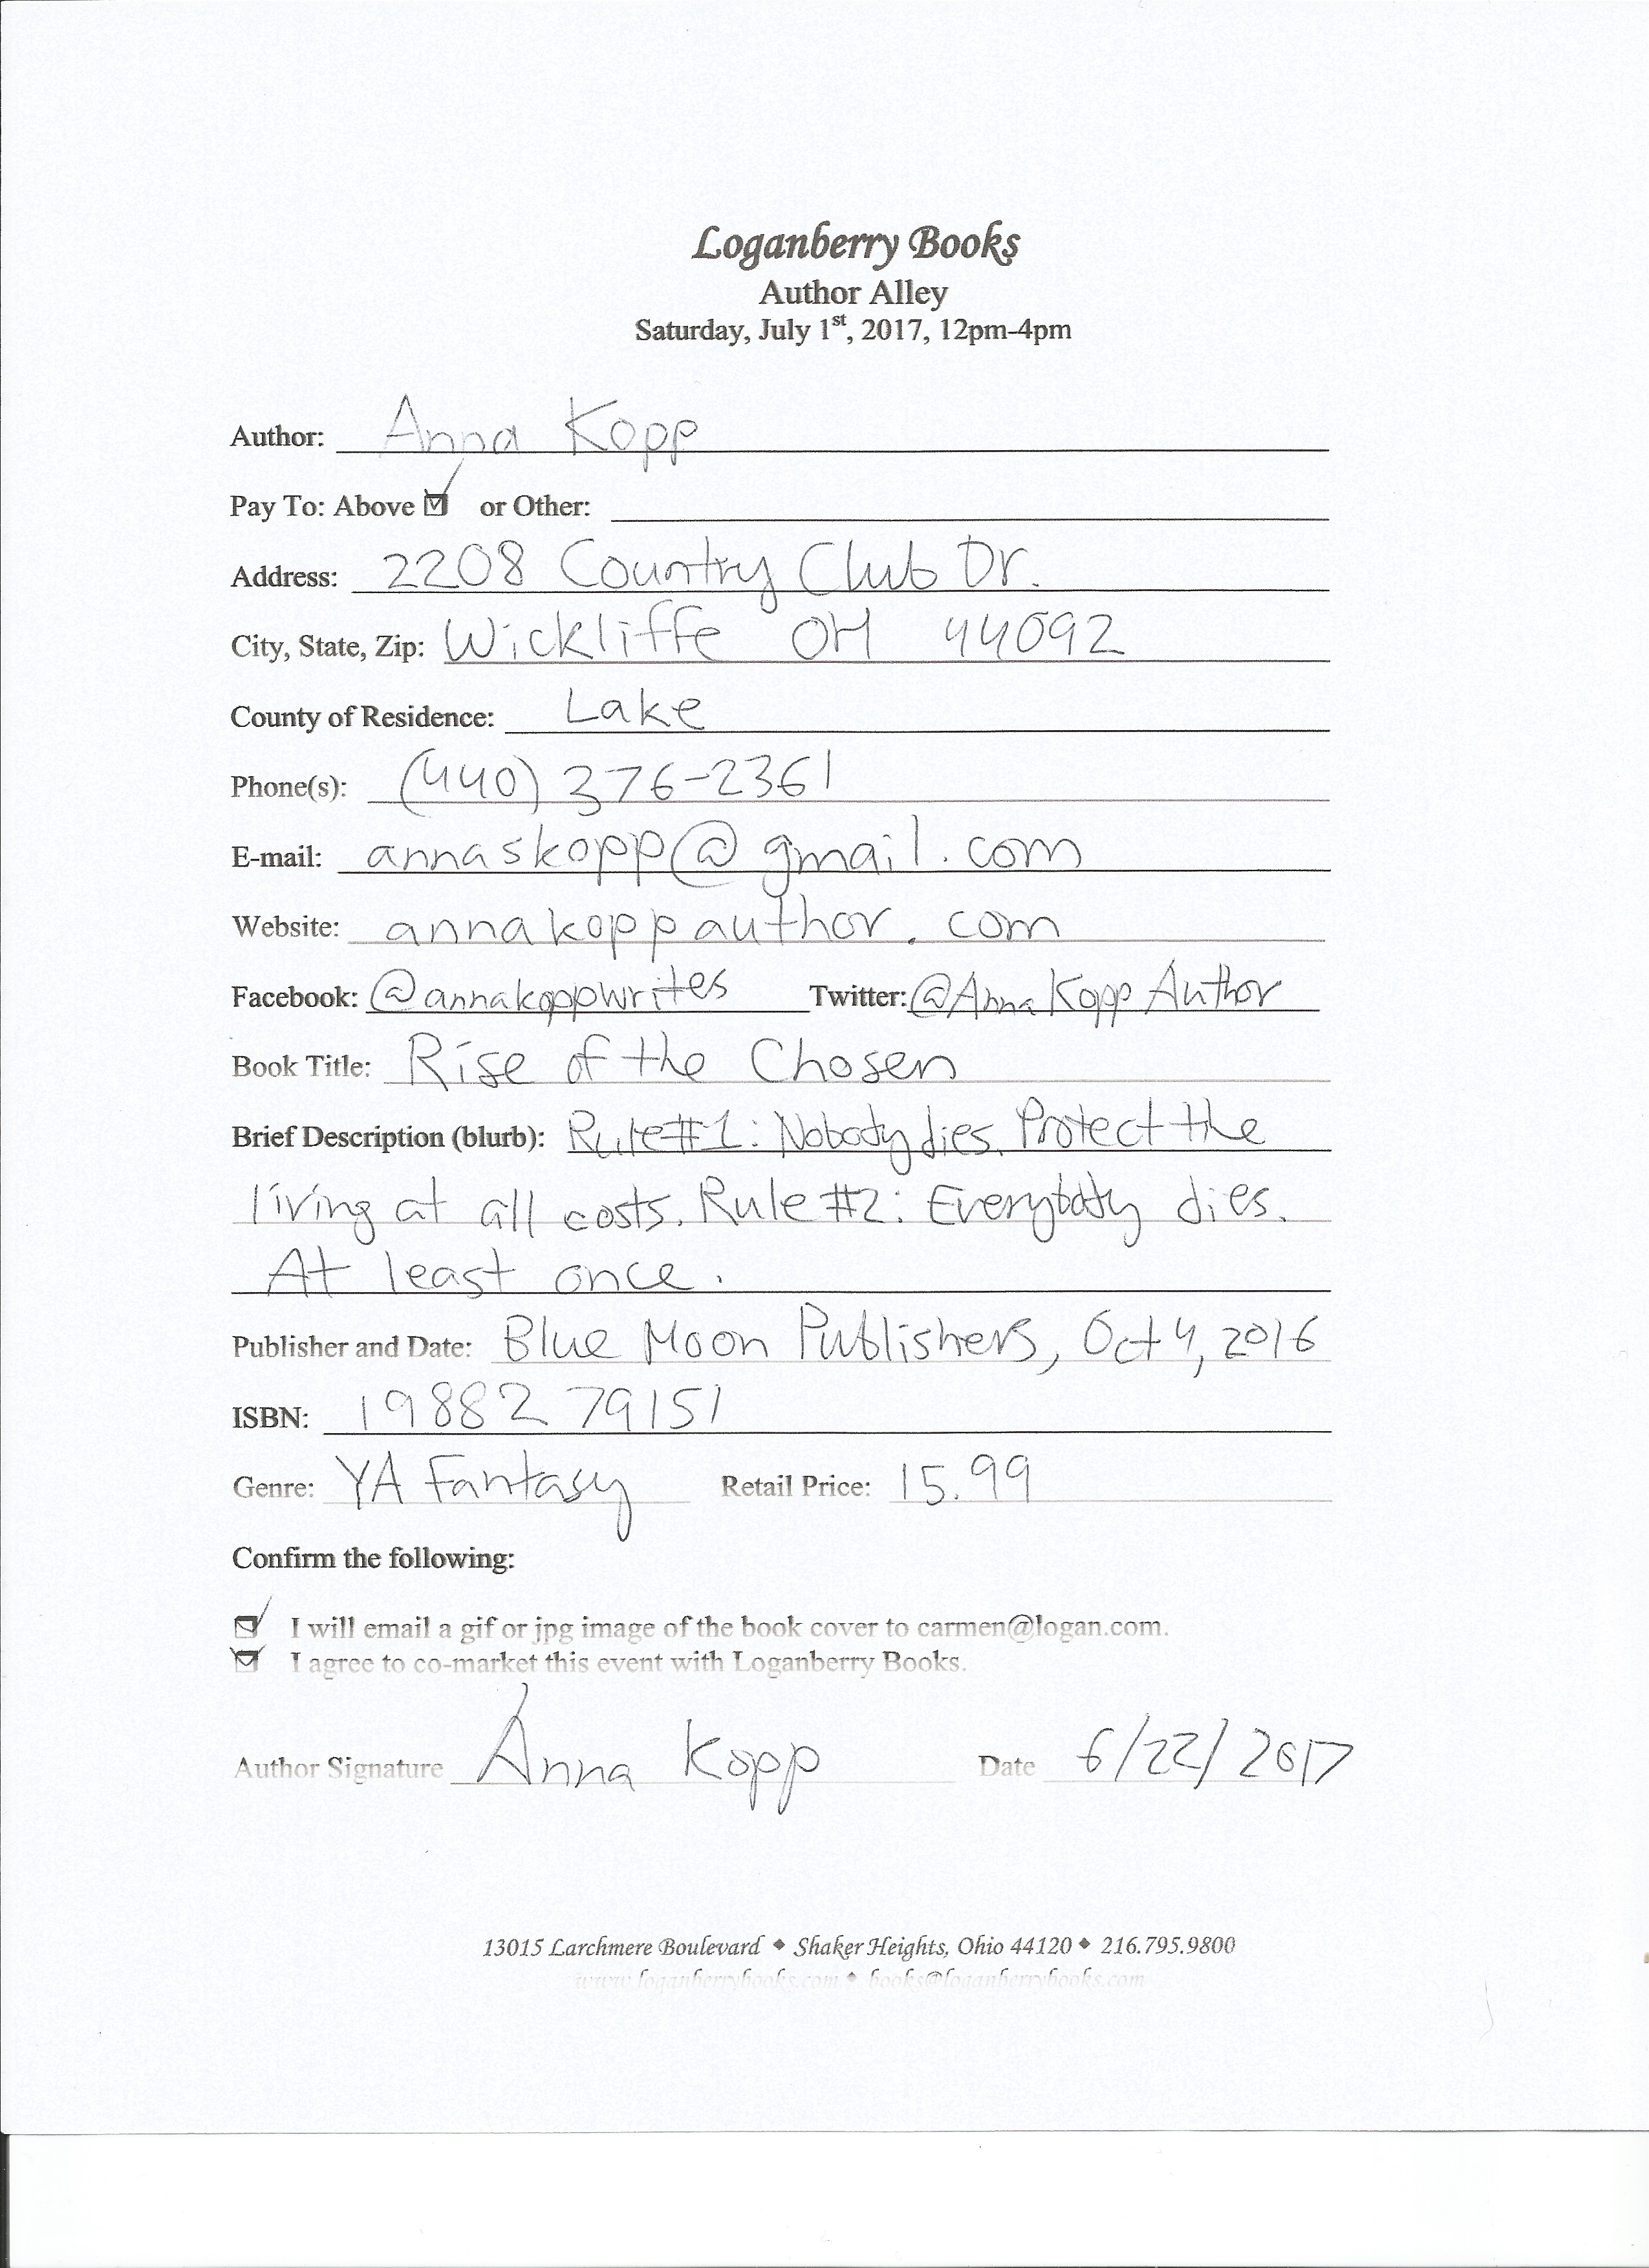 Loganberry Books
Author Alley
Saturday, July 1st, 2017, 12pm-4pm
Author: Anna Kopp
Pay To: Above ☑ or Other:
Address: 2208 Country Club Dr.
City, State, Zip: Wickliffe OH 44092
County of Residence: Lake
Phone(s): (440) 376-2361
E-mail: annaskopp@gmail.com
Website: annakoppauthor.com
Facebook: @annakoppwrites Twitter: @AnnaKoppAuthor
Book Title: Rise of the Chosen
Brief Description (blurb): Rule #1: Nobody dies. Protect the
living at all costs. Rule #2: Everybody dies.
At least once.
Publisher and Date: Blue Moon Publishers, Oct 4, 2016
ISBN: 1988279151
Genre: YA Fantasy Retail Price: 15.99
Confirm the following:
☑ I will email a gif or jpg image of the book cover to carmen@logan.com.
☑ I agree to co-market this event with Loganberry Books.
Author Signature Anna Kopp Date 6/22/2017
13015 Larchmere Boulevard ◆ Shaker Heights, Ohio 44120 ◆ 216.795.9800
www.loganberrybooks.com ◆ books@loganberrybooks.com